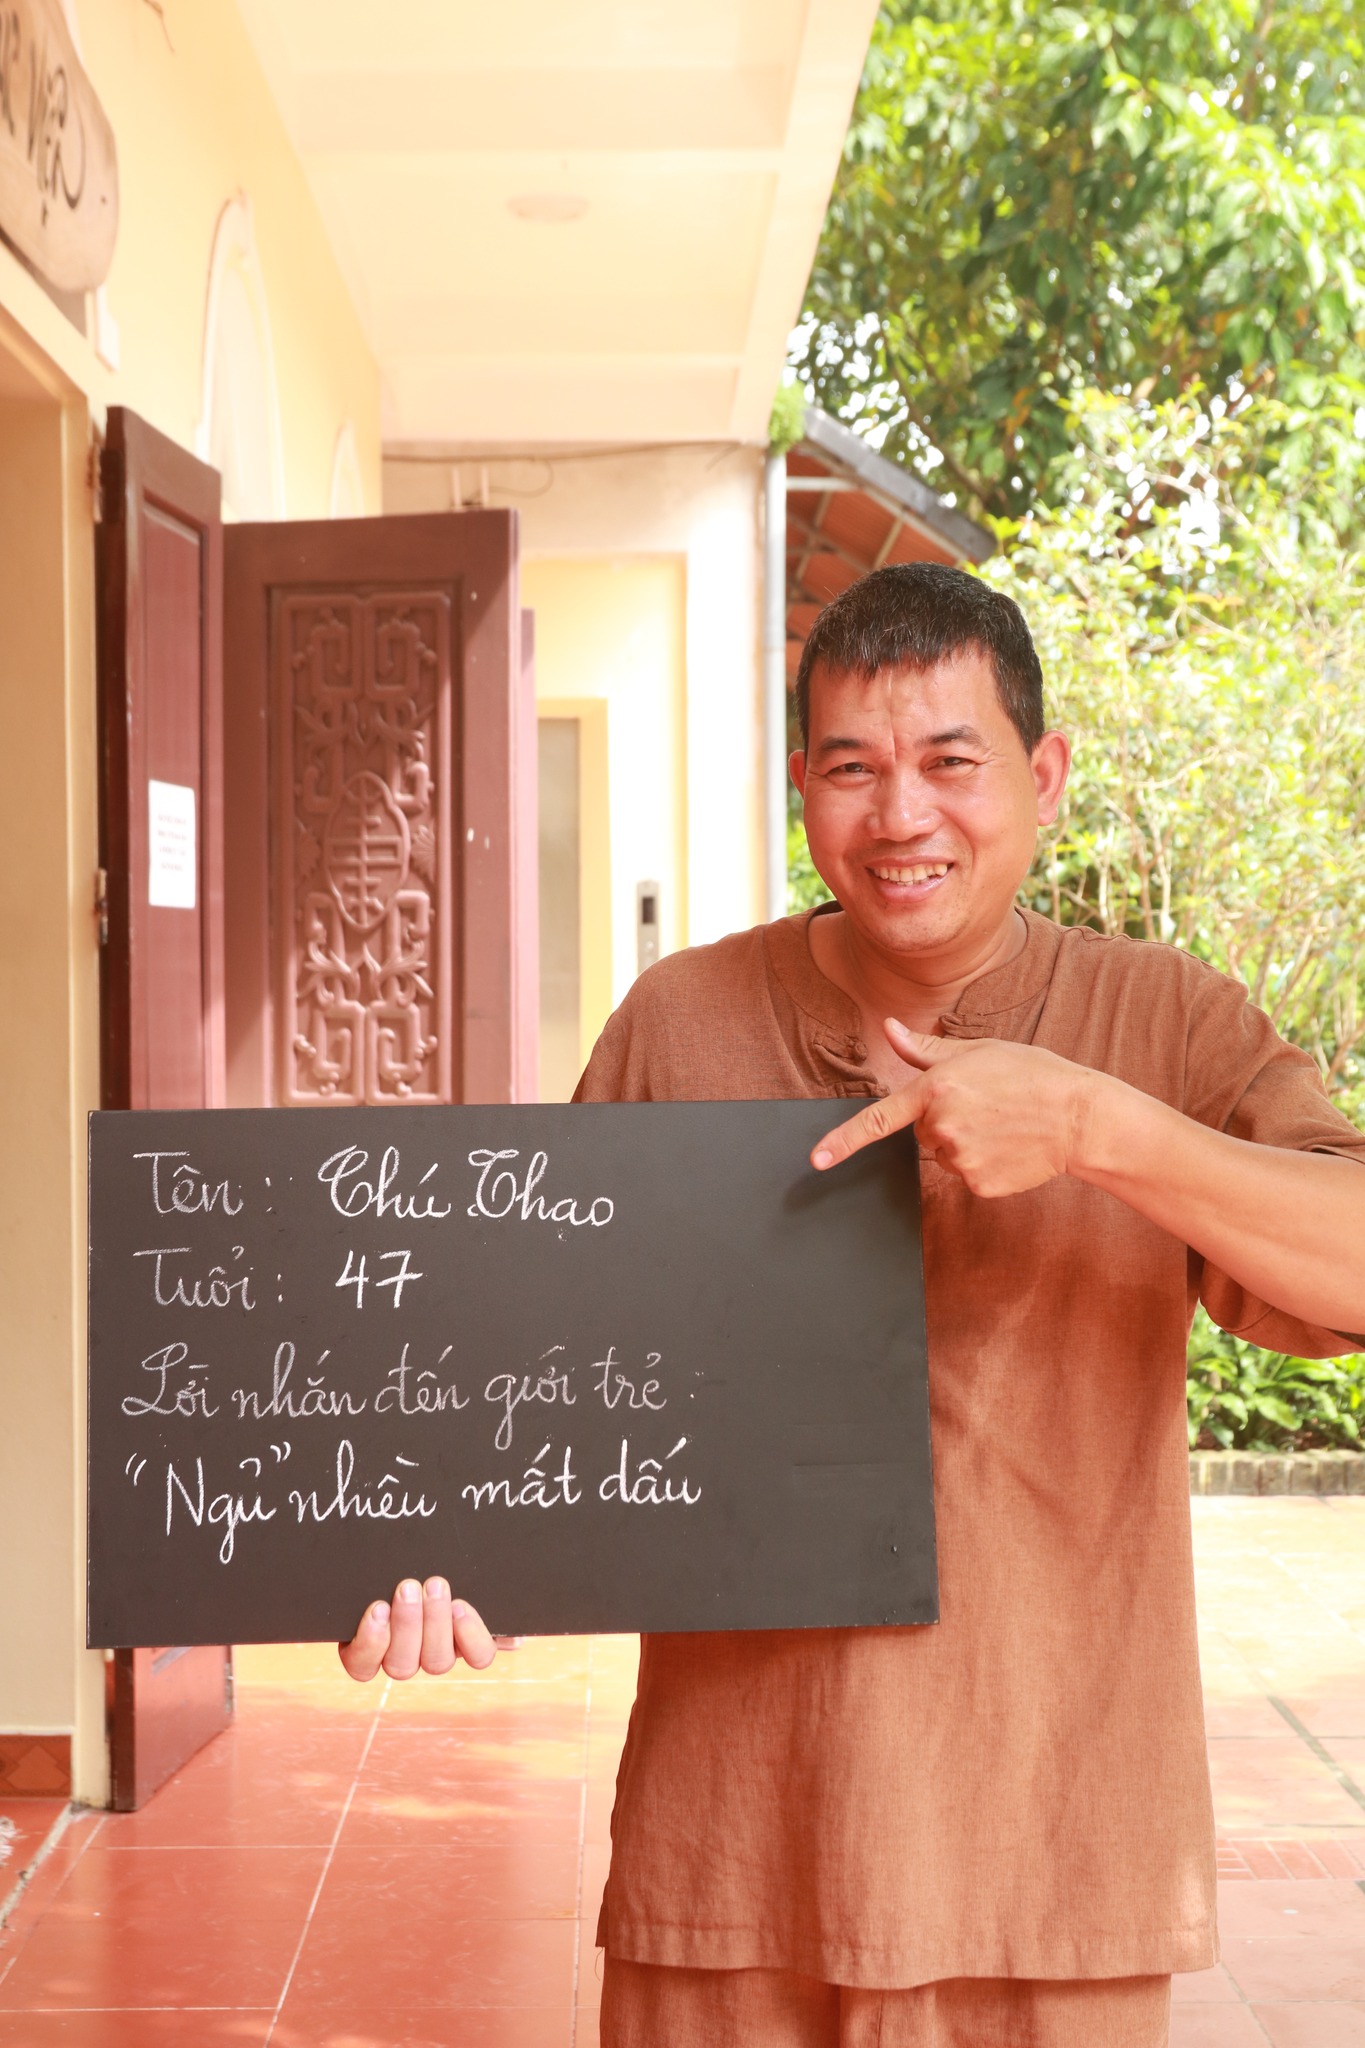 Viện
Tên: Chú Thạo
Tuổi: 47
Lời nhắn đến giới trẻ:
"Ngủ" nhiều mất dấu